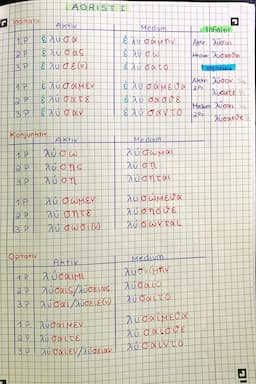 AORIST I
Aktiv Medium
1.P ἔλυσα ἐλυσάμην
2.P ἔλυσας ἐλύσω
3.P ἔλυσε(ν) ἐλύσατο
1.P ἐλύσαμεν ἐλυσάμεθα
2.P ἐλύσατε ἐλύσασθε
3.P ἔλυσαν ἐλύσαντο
Infinitiv
Aktiv: λῦσαι
Konjunktiv
Aktiv Medium
1.P λύσω λύσωμαι
2.P λύσῃς λύσῃ
3.P λύσῃ λύσηται
1.P λύσωμεν λυσώμεθα
2.P λύσητε λύσησθε
3.P λύσωσι(ν) λύσωνται
Optativ
Aktiv Medium
1.P λύσαιμι λυσαίμην
2.P λύσαις/λύσειας λύσαιο
3.P λύσαι/λύσειε(ν) λύσαιτο
1.P λύσαιμεν λυσαίμεθα
2.P λύσαιτε λύσαισθε
3.P λύσαιεν/λύσειαν λύσαιντο